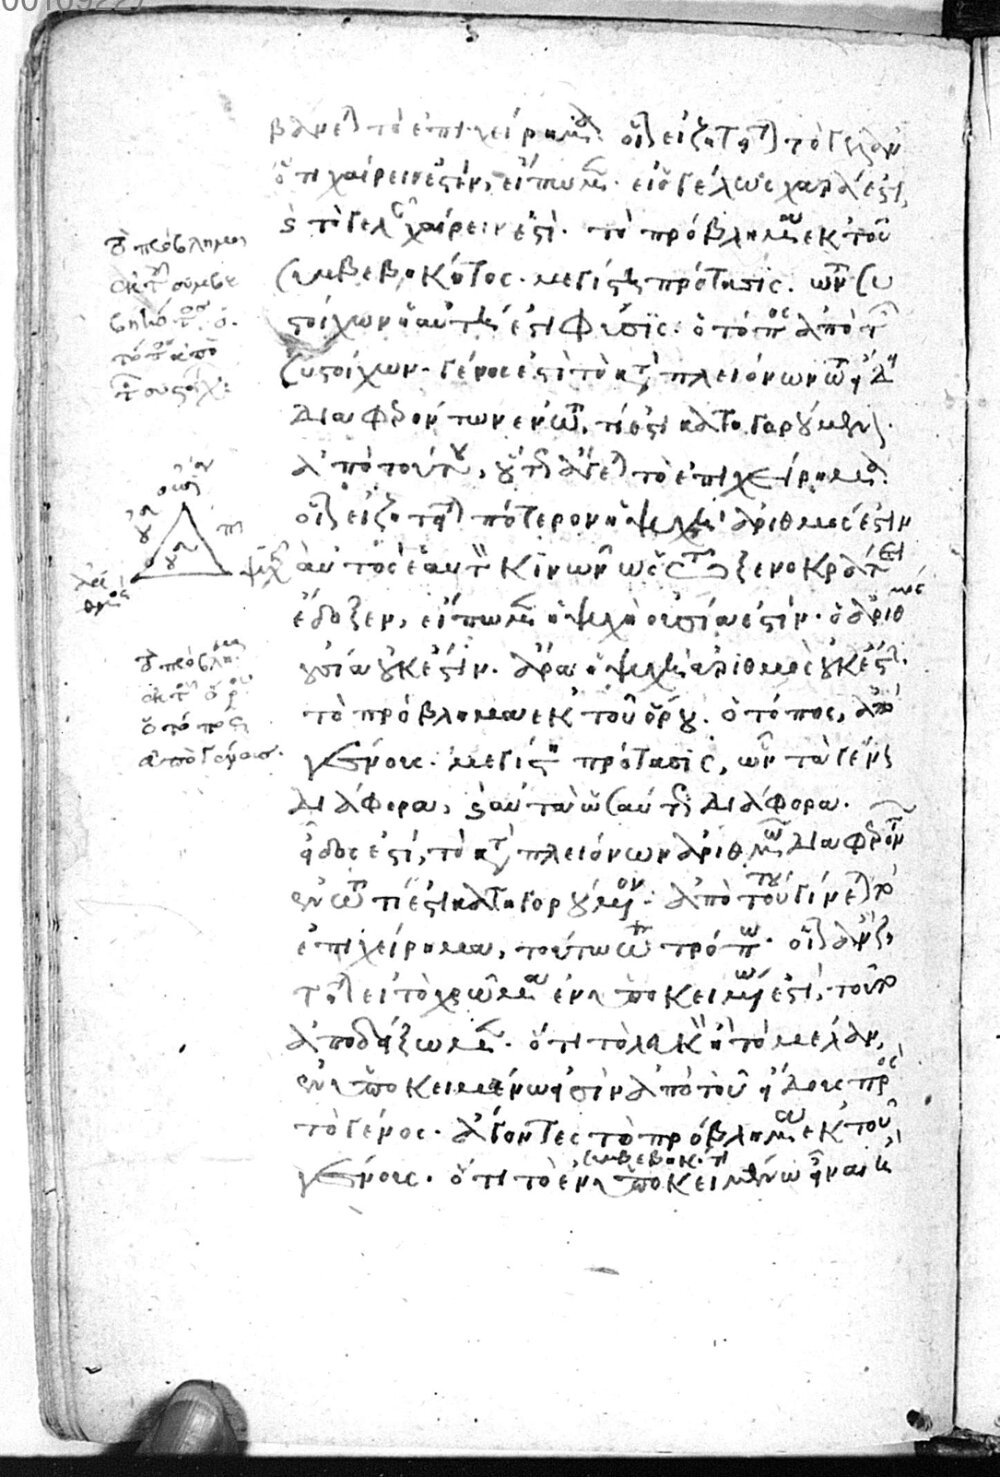 00109227
ὅτι χαίρειν ἐστίν, εἴπωμεν· εἰ ὁ γέλως χαρά ἐστι,
καὶ τὸ γελᾶν χαίρειν ἐστί· τὸ πρόβλημα ἐκ τοῦ
συμβεβηκότος· μεγίστη πρότασις· ὧν συ
στοίχων ἡ αὐτή ἐστι φύσις· ὁ τόπος ἀπὸ τῶν
συστοίχων· γένος ἐστὶ τὸ κατὰ πλειόνων τῷ εἴδει
διαφερόντων ἐν τῷ τί ἐστι κατηγορούμενον·
ἀπὸ τούτου, οὕτως ἄγεται τὸ ἐπιχείρημα·
οἷον εἰ ζητεῖται πότερον ἡ ψυχὴ ἀριθμός ἐστιν
αὐτὸς ἑαυτὸν κινῶν ὡς τῷ ξενοκράτει
ἔδοξεν, εἴπωμεν ἡ ψυχὴ οὐσία ἐστίν· ὁ ἀριθμὸς
οὐσία οὐκ ἔστιν· ἄρα ἡ ψυχὴ ἀριθμὸς οὐκ ἔστι·
τὸ πρόβλημα ἐκ τοῦ ὅρου· ὁ τόπος, ἀπὸ
γένους· μεγίστη πρότασις, ὧν τὰ γένη
διάφορα, καὶ αὐτὰ ὡσαύτως διάφορα·
εἶδος ἐστί, τὸ κατὰ πλειόνων ἀριθμῷ διαφερόντων
ἐν τῷ τί ἐστι κατηγορούμενον· ἀπὸ τούτου γίνεται τὸ
ἐπιχείρημα, τούτῳ τῷ τρόπῳ· οἷον
εἰ τὸ χρῶμα ἐν ὑποκειμένῳ ἐστί, τοῦτο
ἀποδείξωμεν· ὅτι τὸ λευκὸν ἢ τὸ μέλαν,
ἐν ὑποκειμένῳ εἰσὶν ἀπὸ τοῦ εἴδους πρὸς
τὸ γένος· ἄγοντες τὸ πρόβλημα ἐκ τοῦ
συμβεβηκότι
γένους· ὅτι τὸ ἐν ὑποκειμένῳ εἶναι
τὸ πρόβλημα
ἐκ τοῦ συμβε
βηκότος· ὁ
τόπος ἀπὸ
τῶν συστοίχων
οὐσία
ψυχή
ἀριθμός
τὸ πρόβλημα
ἐκ τοῦ ὅρου
ὁ τόπος
ἀπὸ γένους·